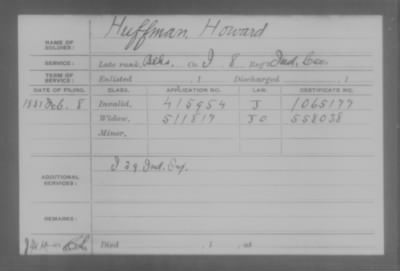 NAME OF SOLDIER: Huffman, Howard
SERVICE: Late rank, Co. I 8 Reg't Ind. Cav.
TERM OF SERVICE: Enlisted , 1 Discharged , 1
DATE OF FILING. CLASS. APPLICATION NO. LAW. CERTIFICATE NO.
1881 Feb. 8 Invalid, 415954 J 1065177
Widow, 511817 558038
Minor,
ADDITIONAL SERVICES: I 29 Ind. Inf.
REMARKS:
Died , 1 , at